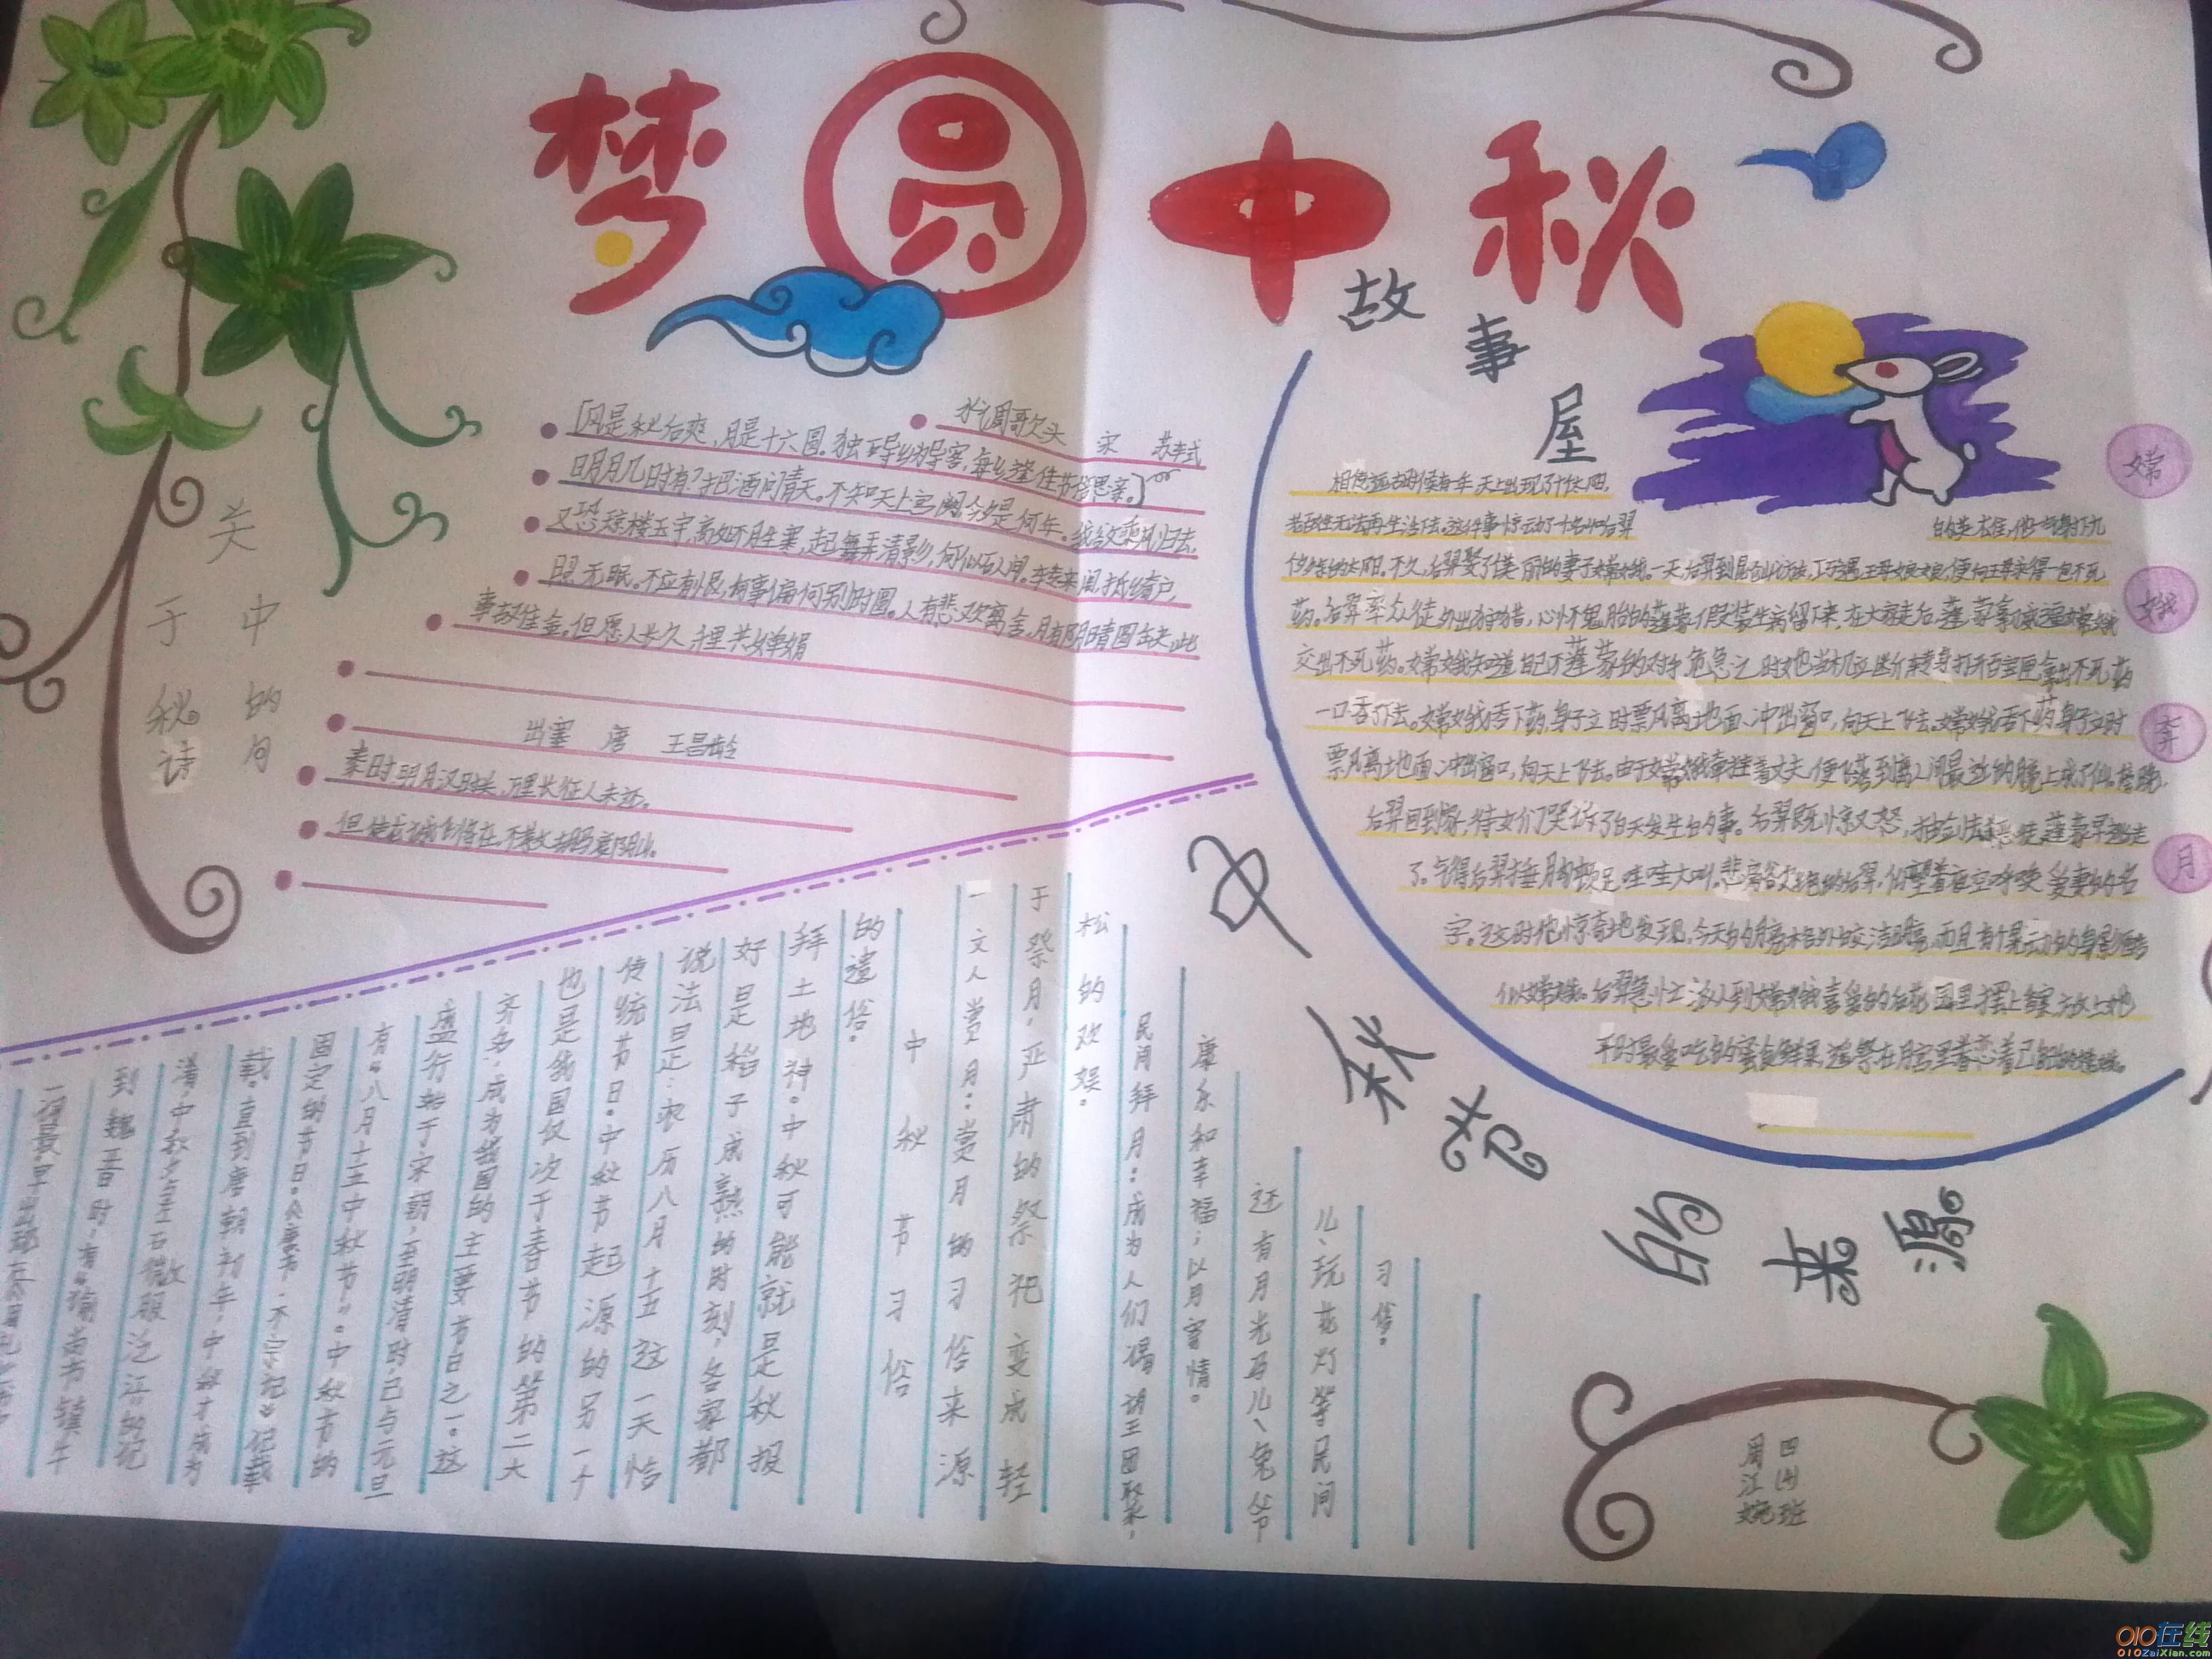 梦圆中秋
关于中秋的诗句
水调歌头 宋 苏轼
「风是秋后爽，月是十六圆。独在异乡为异客，每逢佳节倍思亲。」
明月几时有？把酒问青天。不知天上宫阙，今夕是何年。我欲乘风归去，
又恐琼楼玉宇，高处不胜寒，起舞弄清影，何似在人间。转朱阁，低绮户，
照无眠。不应有恨，何事偏向别时圆。人有悲欢离合，月有阴晴圆缺，此
事古难全。但愿人长久，千里共婵娟
出塞 唐 王昌龄
秦时明月汉时关，万里长征人未还。
但使龙城飞将在，不教胡马度阴山。
故事屋
嫦娥奔月
相传远古时候有一年，天上出现了十个太阳，
老百姓无法再生活下去。这件事惊动了名叫后羿
的英雄，他一气射下九
个多余的太阳。不久，后羿娶了美丽的妻子嫦娥。一天，后羿到昆仑山访友，巧遇王母娘娘，便向王母求得一包不死
药。后羿率众徒外出狩猎，心怀鬼胎的蓬蒙假装生病留下来，在大家走后，蓬蒙拿
交出不死药。嫦娥知道自己不蓬蒙的对手，危急之时她当机立断转身打开百宝匣拿出不死药
一口吞了下去。嫦娥吞下药，身子立时票风离地面、冲出窗口，向天上飞去。嫦娥吞下药，身子立时
票风离地面、冲出窗口，向天上飞去。由于嫦娥牵挂着丈夫，便飞落到离人间最近的
后羿回到家，侍女们哭诉了白天发生的事。后羿既惊又怒，抽剑去杀恶徒，蓬蒙早逃走
了。气得后羿捶胸顿足哇哇大叫。悲痛欲绝的后羿，仰望着夜空呼唤爱妻的名
字。这时他惊奇地发现，今天的月亮格外皎洁明亮，而且有个晃动的身影酷
似嫦娥。后羿急忙派人到嫦娥喜爱的后花园里摆上香案，放上她
平时最爱吃的蜜食鲜果，遥祭在月宫里眷恋着自己的嫦娥。
中秋节的来源
到魏晋时，有“谕尚书镇牛
渚，中秋夕与左右微服泛江”的记
载。直到唐朝初年，中秋才成为
固定的节日。《唐书·太宗记》记载
有“八月十五中秋节”。中秋节的
盛行始于宋朝，至明清时，已与元旦
齐名，成为我国的主要节日之一。这
也是我国仅次于春节的第二大
传统节日。中秋节起源的另一个
说法是：农历八月十五这一天恰
好是稻子成熟的时刻，各家都
拜土地神。中秋可能就是秋报
的遗俗。
中秋节习俗
一文人赏月：赏月的习俗来源
于祭月，严肃的祭祀变成轻
松的欢娱。
民间拜月：成为人们渴望团聚，
康乐和幸福；以月寄情。
还有月光马儿、兔爷
儿、玩花灯等民间
习俗。
四(4)班
周江婉
010在线
010ZaiXian.com